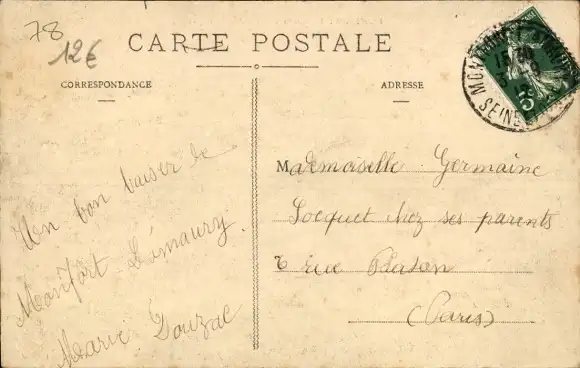 78
12€
CARTE POSTALE
CORRESPONDANCE
ADRESSE
Un bon baiser de
Monfort Lámaury.
Marie Douzac
Mademoiselle Germaine
Locquet chez ses parents
rue
(Paris)
MONTFORT
SEINE
5